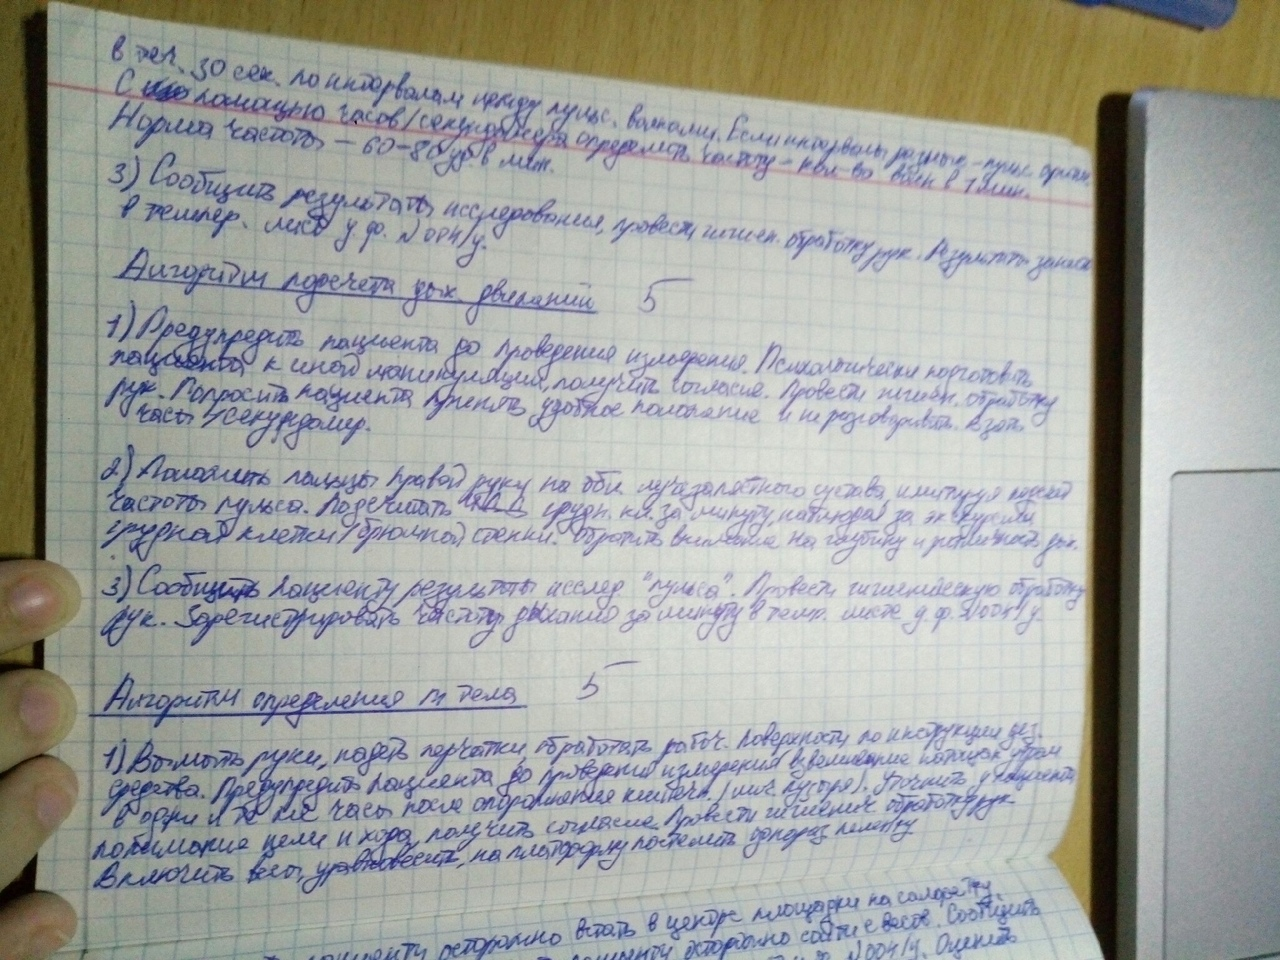 в теч. 30 сек. по интервалам между пульс. волнами. Если интервалы разные - пульс аритм.
С помощью часов/секундомера определить частоту - кол-во волн в 1 мин.
Норма частоты - 60-80 уд. в мин.
3) Сообщить результаты исследования, провести гигиен. обработку рук. Результаты занести
в темпер. лист у.ф. №004/у.
Алгоритм подсчета дых. движений 5
1) Предупредить пациента до проведения измерения. Психологически подготовить
пациента к иной манипуляции, получить согласие. Провести гигиен. обработку
рук. Попросить пациента принять удобное положение и не разговаривать. Взять
часы/секундомер.
2) Положить пальцы правой руку на обл. лучезапястного сустава, имитируя подсчёт
частоты пульса. Подсчитать грудн. кл. за минуту, наблюдая за экскурсией
грудной клетки/брюшной стенки. Обратить внимание на глубину и ритмичность дых.
3) Сообщить пациенту результаты исслед. "пульса". Провести гигиеническую обработку
рук. Зарегистрировать частоту дыхания за минуту в темп. листе у.ф. №004/у.
Алгоритм определения m тела 5
1) Вымыть руки, надеть перчатки, обработать рабоч. поверхность по инструкции дез.
средства. Предупредить пациента до проведения измерения взвешивание натощак утром
в одни и те же часы после опорожнения кишечн. (моч. пузыря). Уточнить у пациента
понимание цели и хода, получить согласие. Провести гигиенич. обработку рук.
Включить весы, уравновесить, на платформу постелить однораз. пелёнку
пациенту осторожно встать в центре площадки на салфетку.
пациенту осторожно сойти с весов. Сообщить
№004/у. Оценить